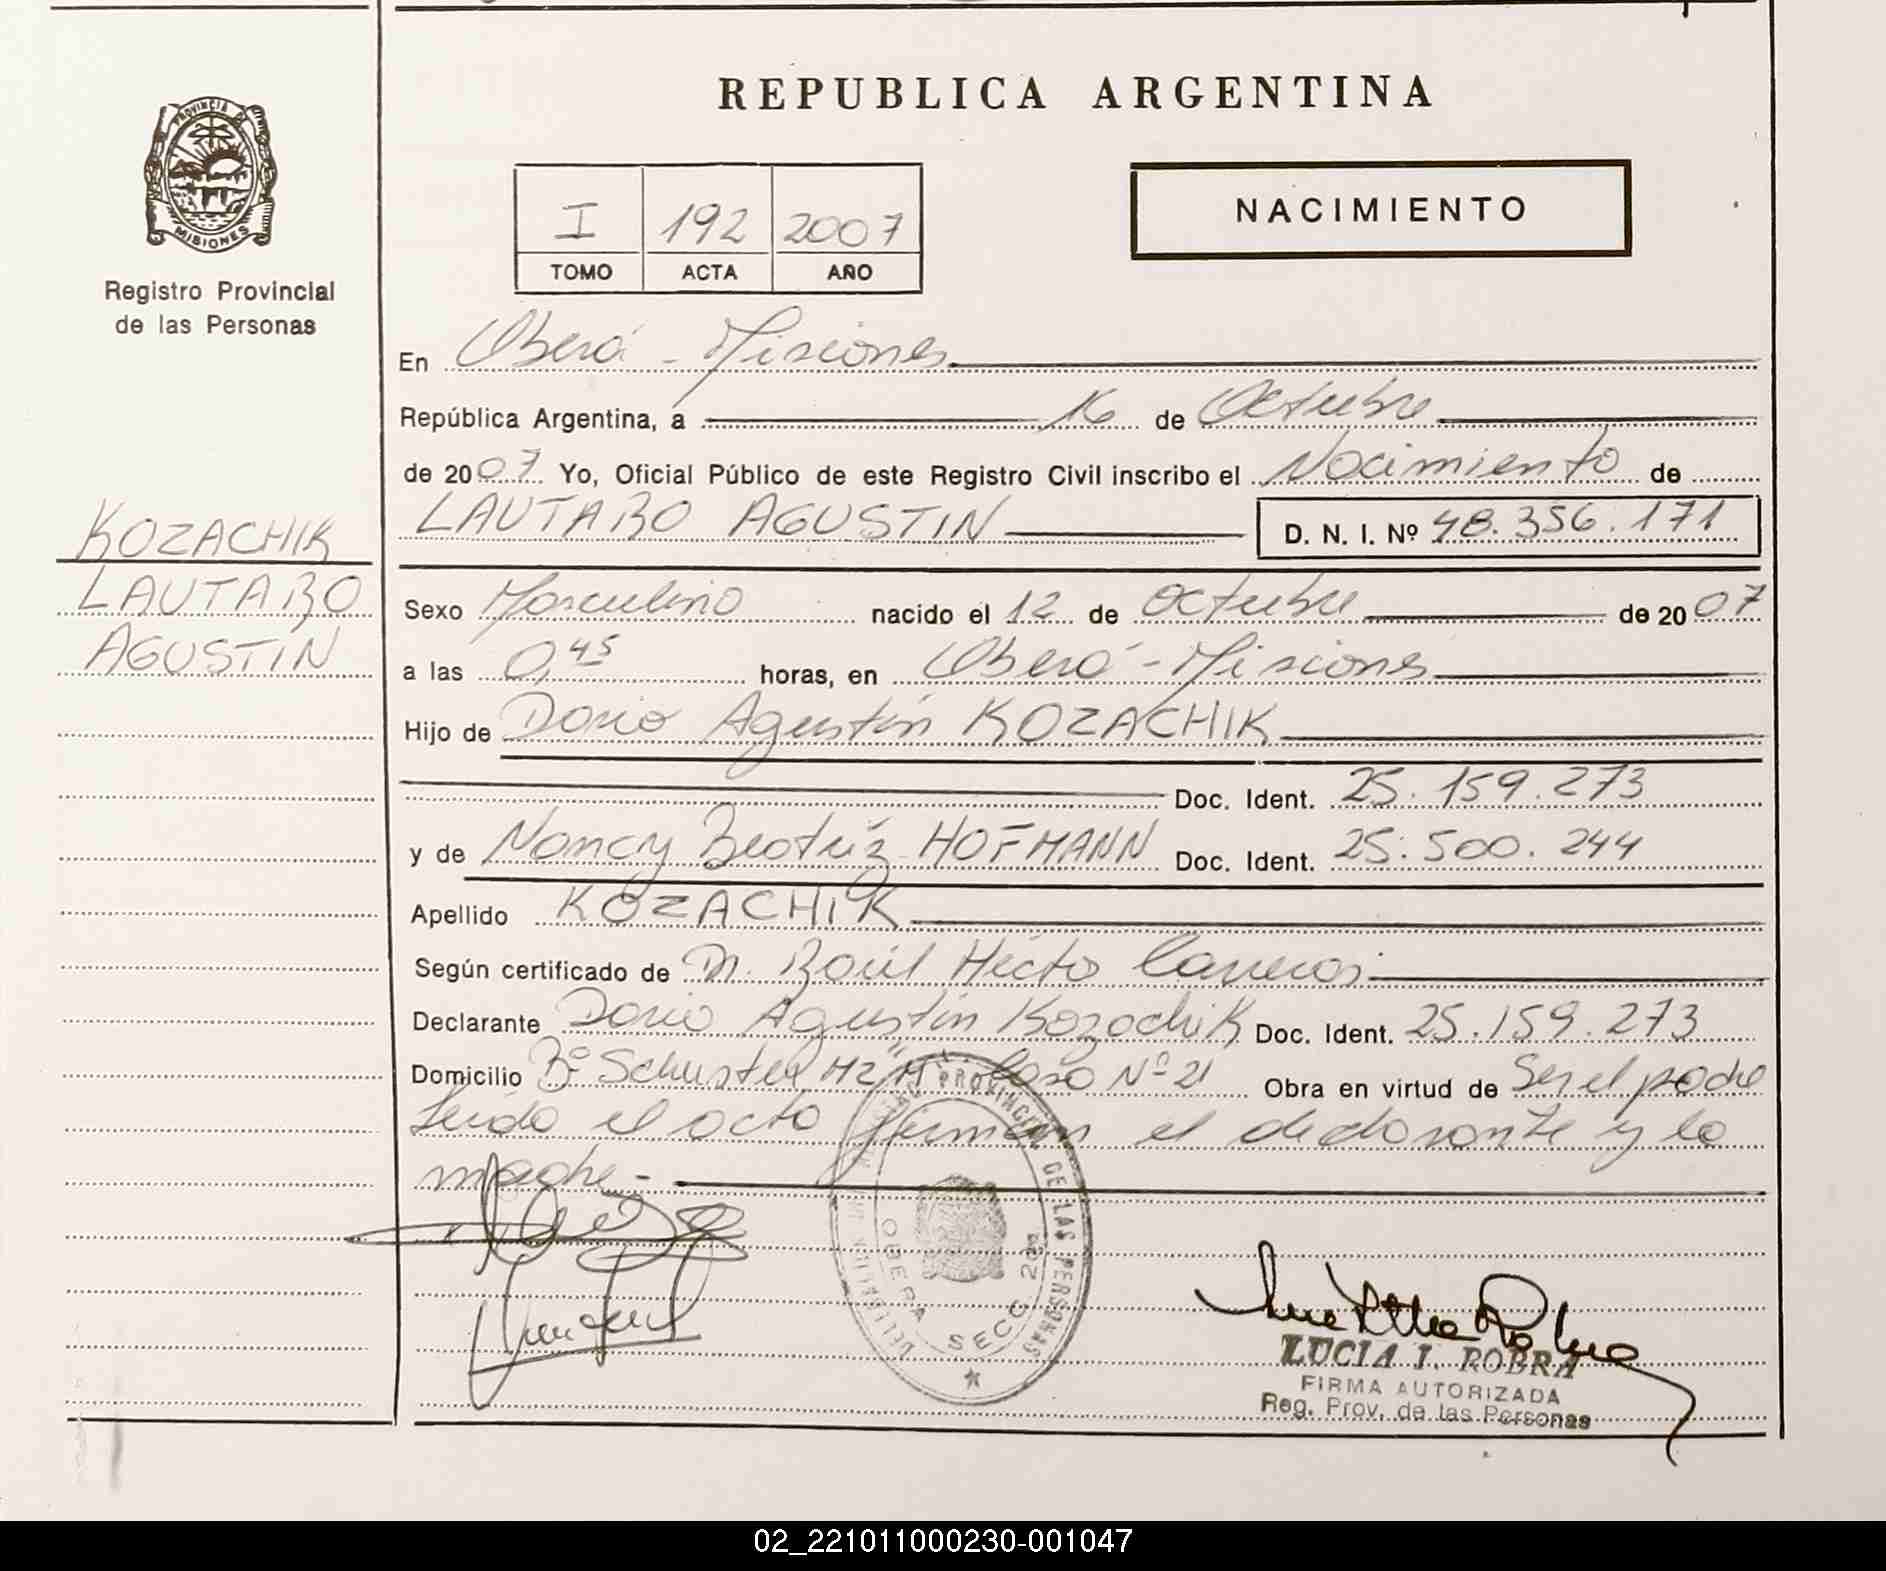 REPUBLICA ARGENTINA
PROVINCIA DE
MISIONES
Registro Provincial
de las Personas
I 192 2007
TOMO ACTA AÑO
NACIMIENTO
En Oberá - Misiones
República Argentina, a 16 de Octubre
de 2007 Yo, Oficial Público de este Registro Civil inscribo el Nacimiento de
LAUTARO AGUSTIN D. N. I. Nº 48.356.171
KOZACHIK
LAUTARO
AGUSTIN
Sexo Masculino nacido el 12 de Octubre de 2007
a las 0,45 horas, en Oberá - Misiones
Hijo de Dario Agustín KOZACHIK
Doc. Ident. 25.159.273
y de Nancy Beatriz HOFMANN Doc. Ident. 25.500.244
Apellido KOZACHIK
Según certificado de Dr. Raúl Héctor
Declarante Dario Agustín Kozachik Doc. Ident. 25.159.273
Domicilio Bº Schuster Mz "M" Casa Nº 21 Obra en virtud de Ser el padre
Leida el acta firman el declarante y la
madre -
PROVINCIAL DE LAS PERSONAS
OBERA SECC. 2da
LUCIA I. ROBRA
FIRMA AUTORIZADA
Reg. Prov. de las Personas
02_221011000230-001047